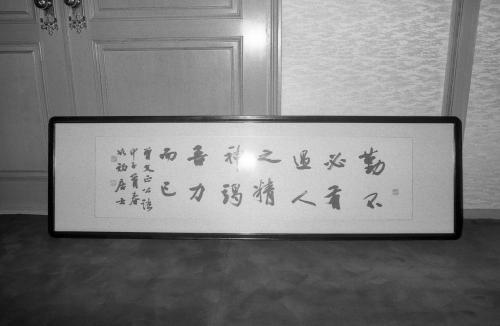 勤不
必有
過人
之精
神竭
吾力
而已
曾文正公語
甲子首春
居士